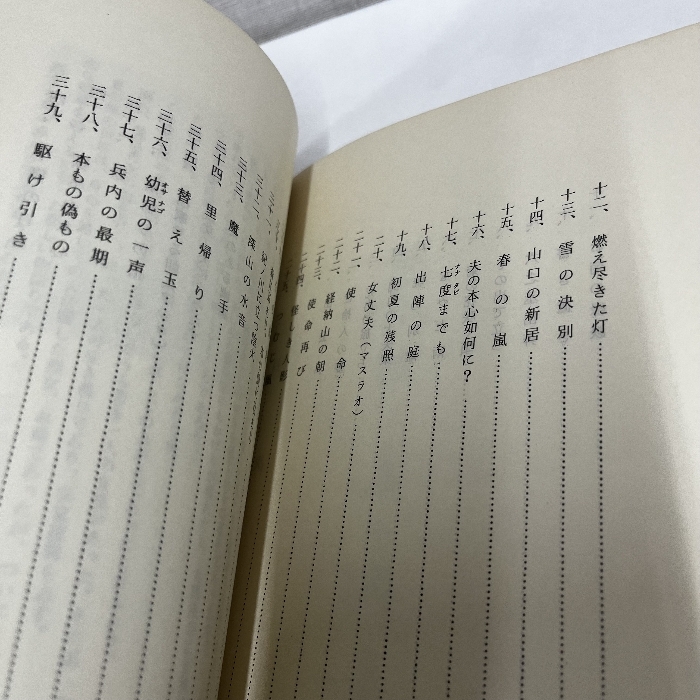 十二、燃え尽きた灯
十三、雪の決別
十四、山口の新居
十五、春の嵐
十六、夫の本心如何に？
十七、七度までも
十八、出陣の庭
十九、初夏の残照
二十、女丈夫（マスラオ）
二十一、使命
二十二、経納山の朝
二十三、使命再び
二十四、
三十二、
三十三、深山の水音
三十四、魔手
三十五、里帰り
三十六、替え玉
三十七、幼児の一声
三十八、兵内の最期
三十九、本もの偽もの
駆け引き